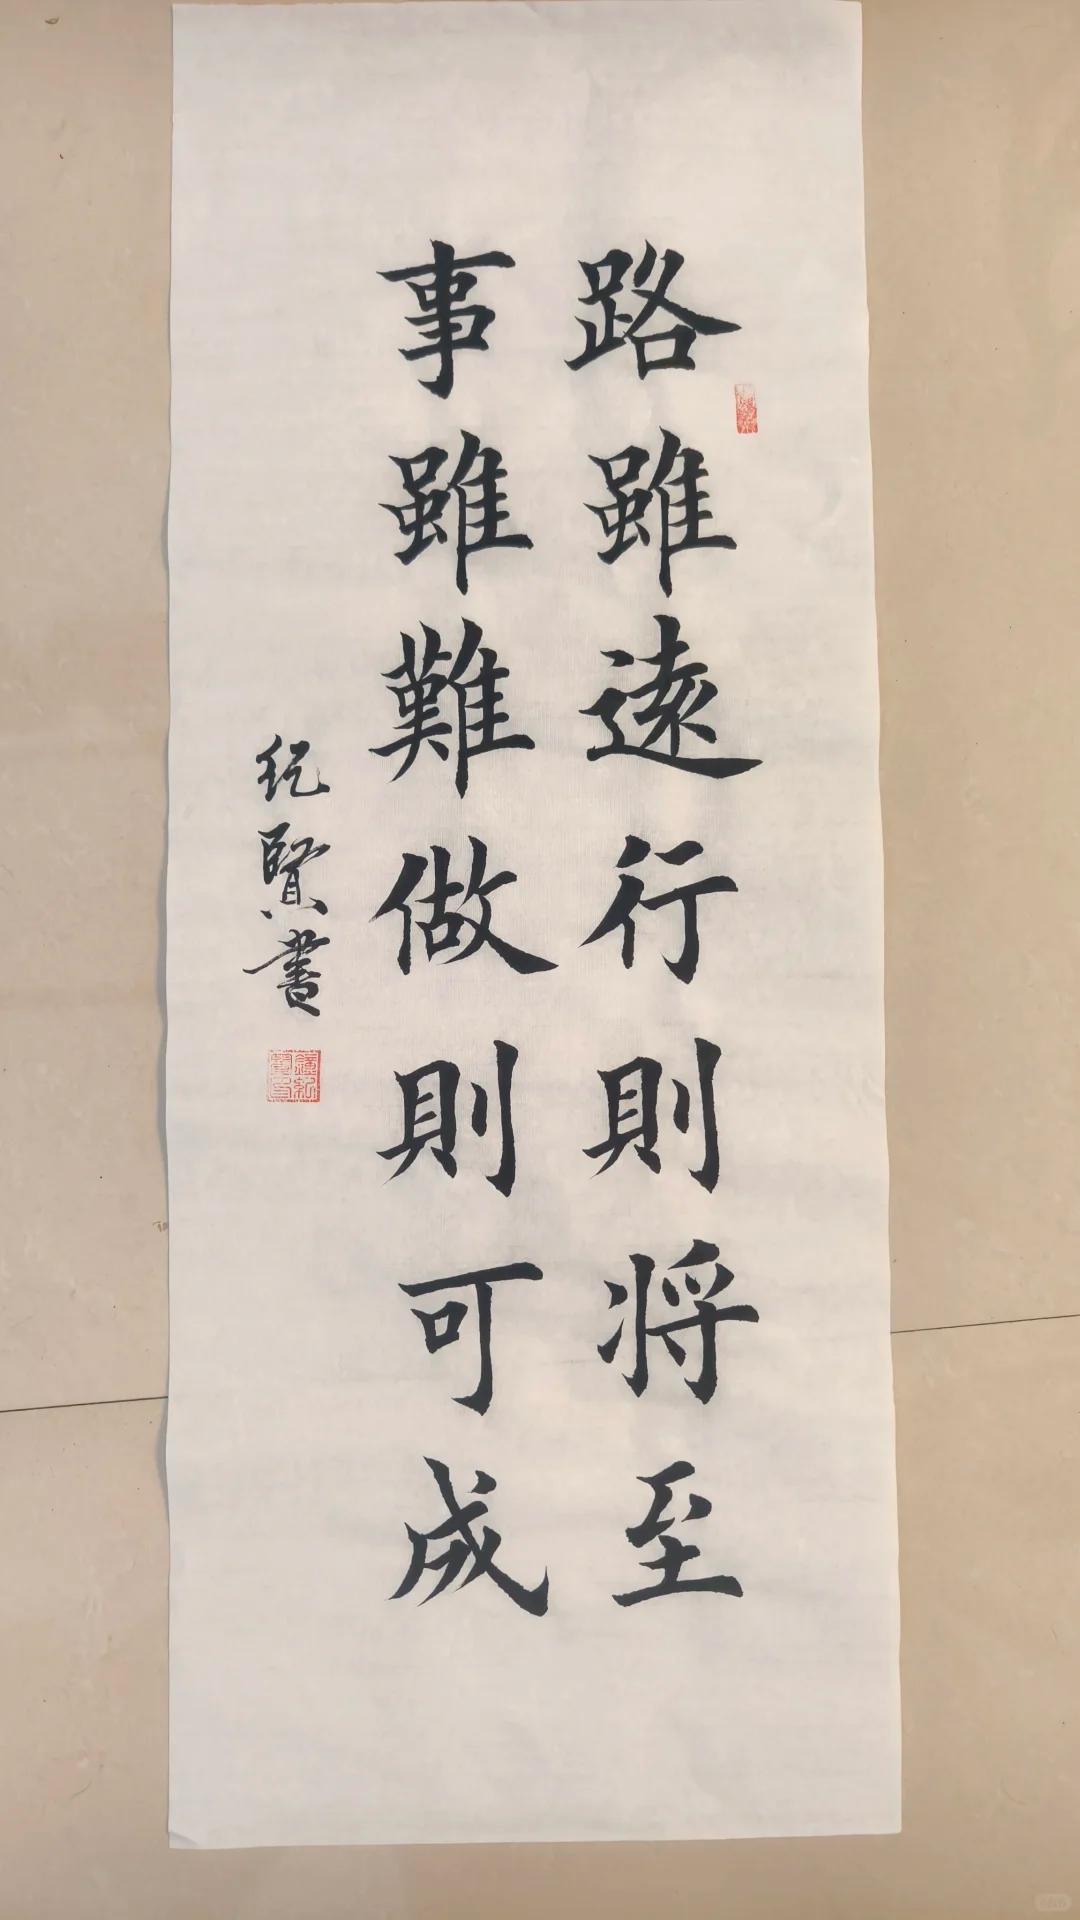 路雖遠行則将至
事雖難做則可成
紀賢書